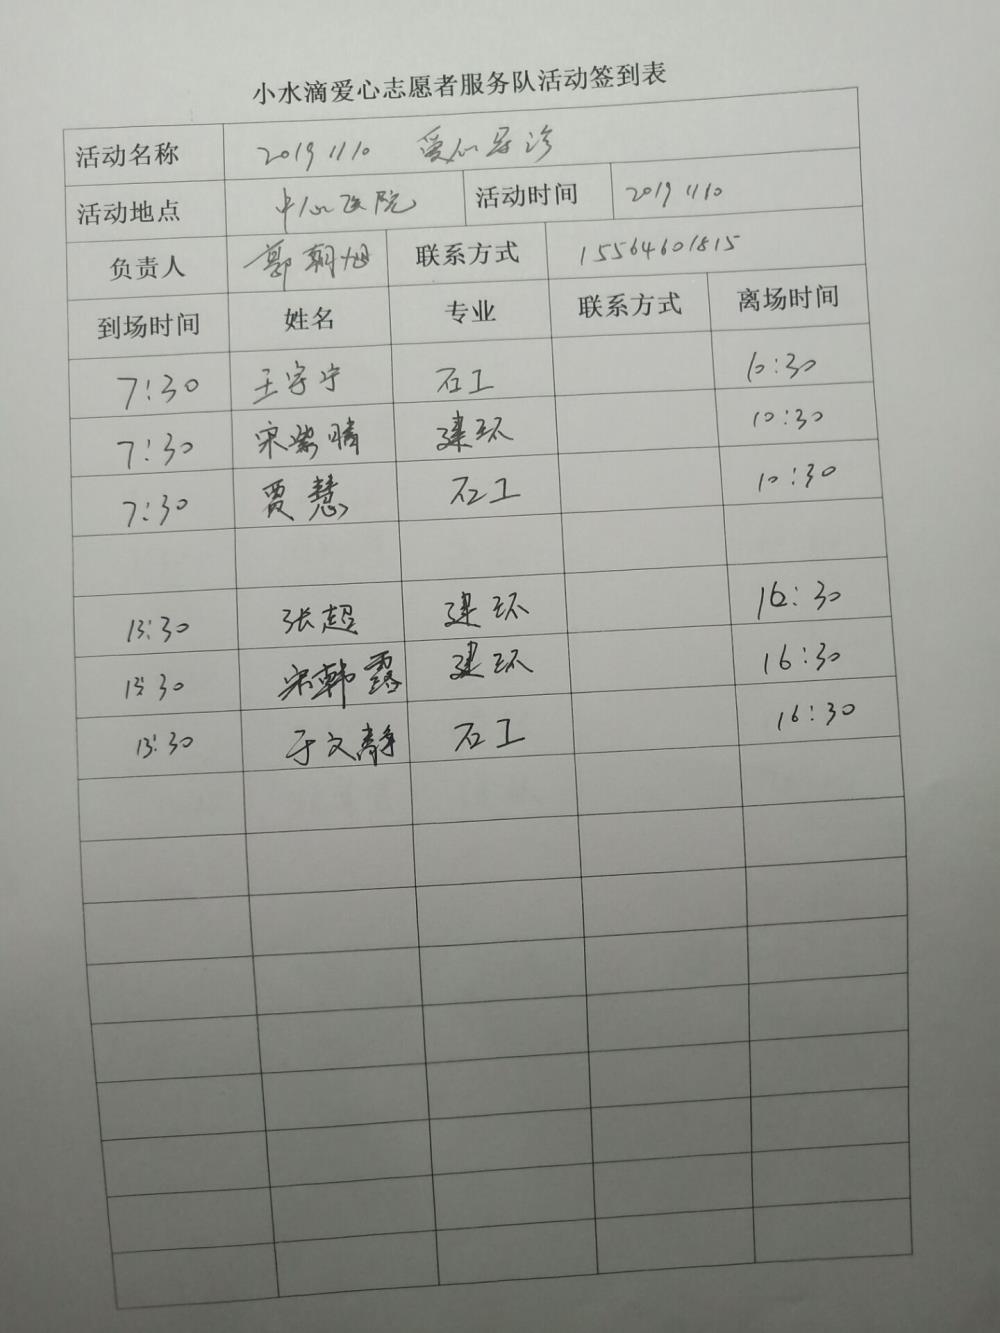 小水滴爱心志愿者服务队活动签到表
活动名称 20191110 爱心导诊
活动地点 中心医院 活动时间 20191110
负责人 郭朝旭 联系方式 15564601815
到场时间 姓名 专业 联系方式 离场时间
7:30 王宇宁 石工 10:30
7:30 宋紫晴 建环 10:30
7:30 贾慧 石工 10:30
13:30 张超 建环 16:30
13:30 宋韩露 建环 16:30
13:30 于文静 石工 16:30